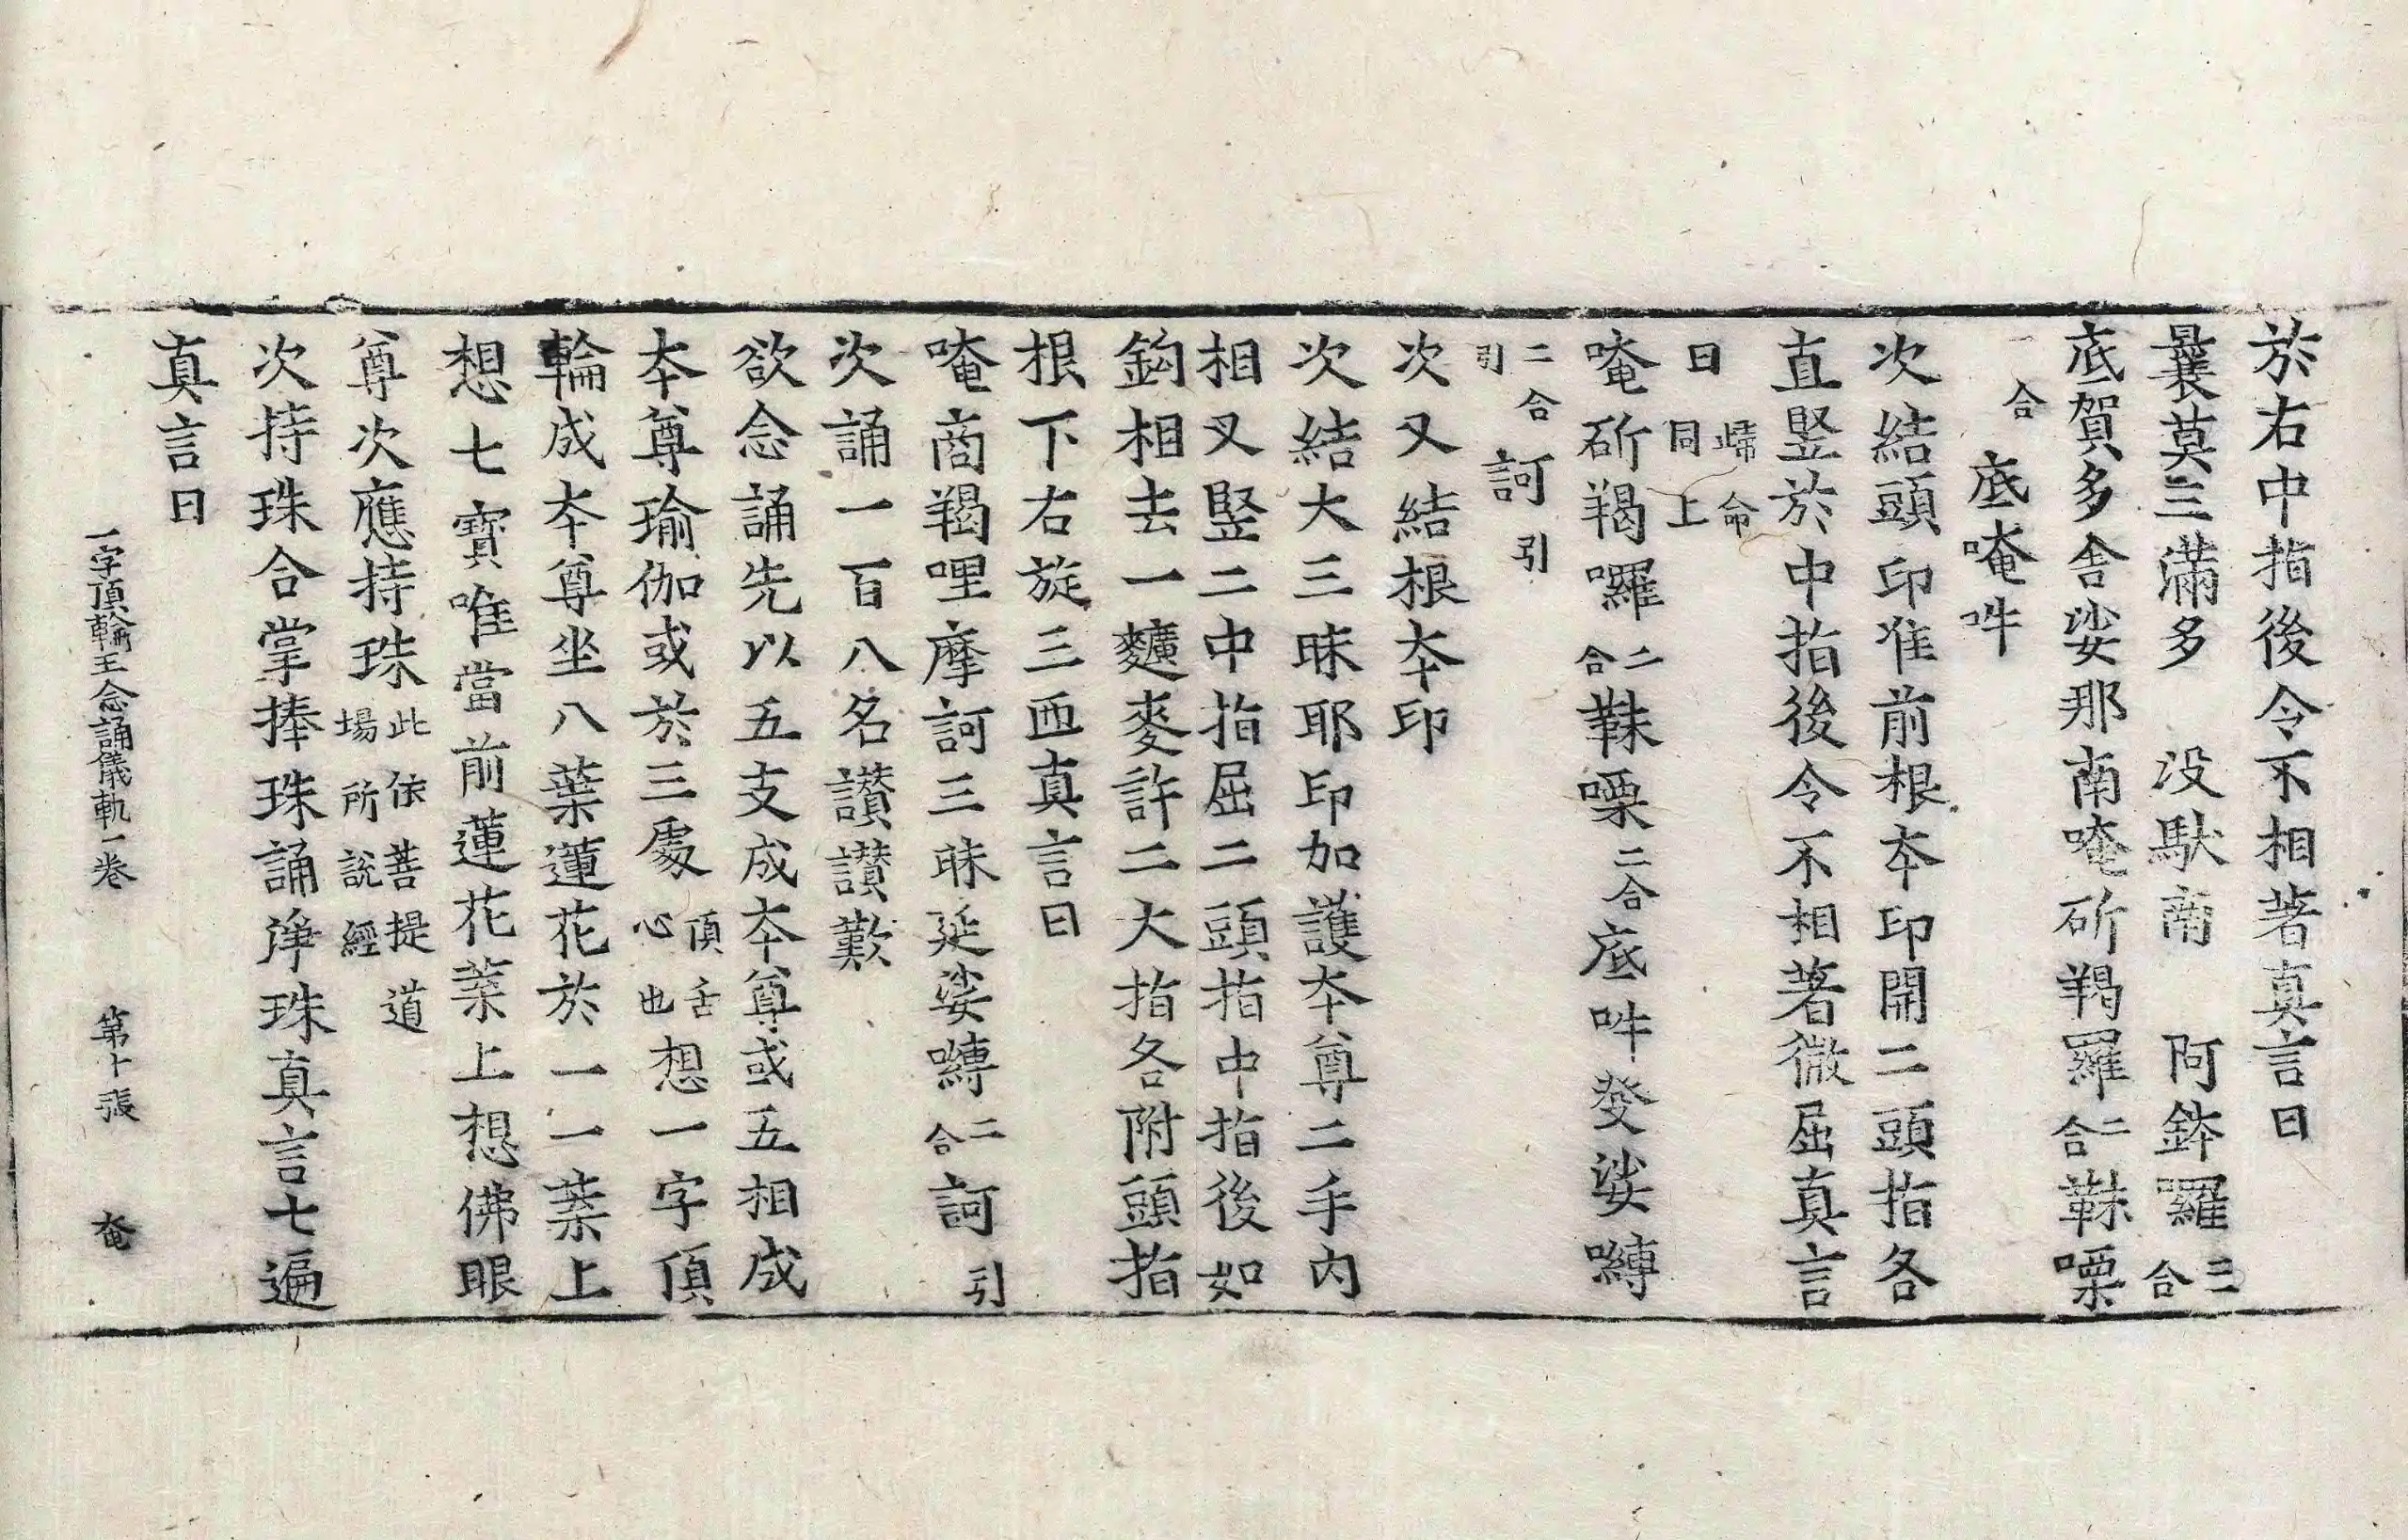 於右中指後令不相著真言曰
曩莫三滿多 沒馱南 阿鉢羅二合
底賀多舍娑那南唵斫羯羅二合韎㗚
二合底唵吽
次結頭印准前根本印開二頭指各
直竪於中指後令不相著微屈真言
曰歸命同上
唵斫羯囉二合韎㗚二合底吽發娑嚩
二合引訶引
次又結根本印
次結大三昧耶印加護本尊二手內
相叉竪二中指屈二頭指中指後如
鈎相去一䵃麥許二大指各附頭指
根下右旋三匝真言曰
唵商羯哩摩訶三昧延娑嚩二合訶引
次誦一百八名讚讚歎
欲念誦先以五支成本尊或五相成
本尊瑜伽或於三處頂舌心也想一字頂
輪成本尊坐八葉蓮花於一一葉上
想七寶唯當前蓮花葉上想佛眼
尊次應持珠此依菩提道場所說經
次持珠合掌捧珠誦淨珠真言七遍
真言曰
一字頂輪王念誦儀軌一卷 第十張 奄